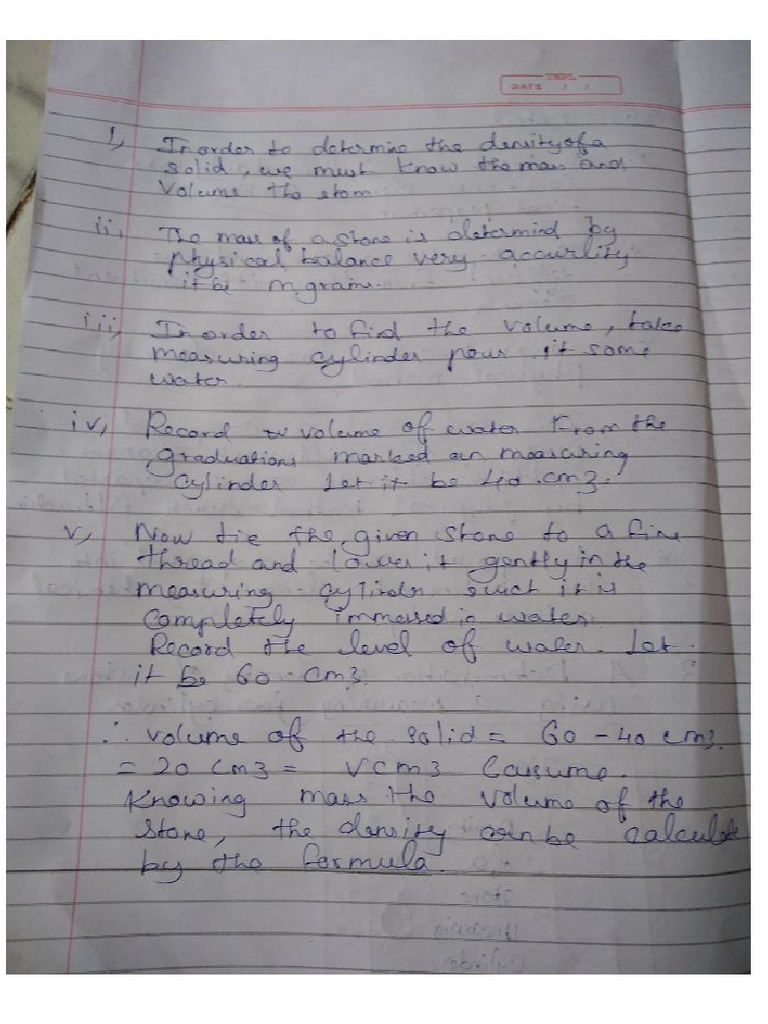 DATE / /
i, In order to determine the density of a
solid, we must know the mass and
volume the stom
ii, The mass of a stone is determind by
physical balance very accurlity
it be m grams.
iii, In order to find the volume, take
measuring cylinder pour it some
water.
iv, Record volume of water from the
graduations marked an measuring
cylinder let it be 40 cm3.
v, Now tie the given stone to a fine
thread and lower it gently in the
measuring cylinder such it is
completely immersed in water.
Record the level of water. Let
it be 60 cm3.
∴ volume of the solid = 60 - 40 cm3.
= 20 cm3 = V cm3 (assume.
Knowing mass the volume of the
stone, the density can be calculate
by the formula.